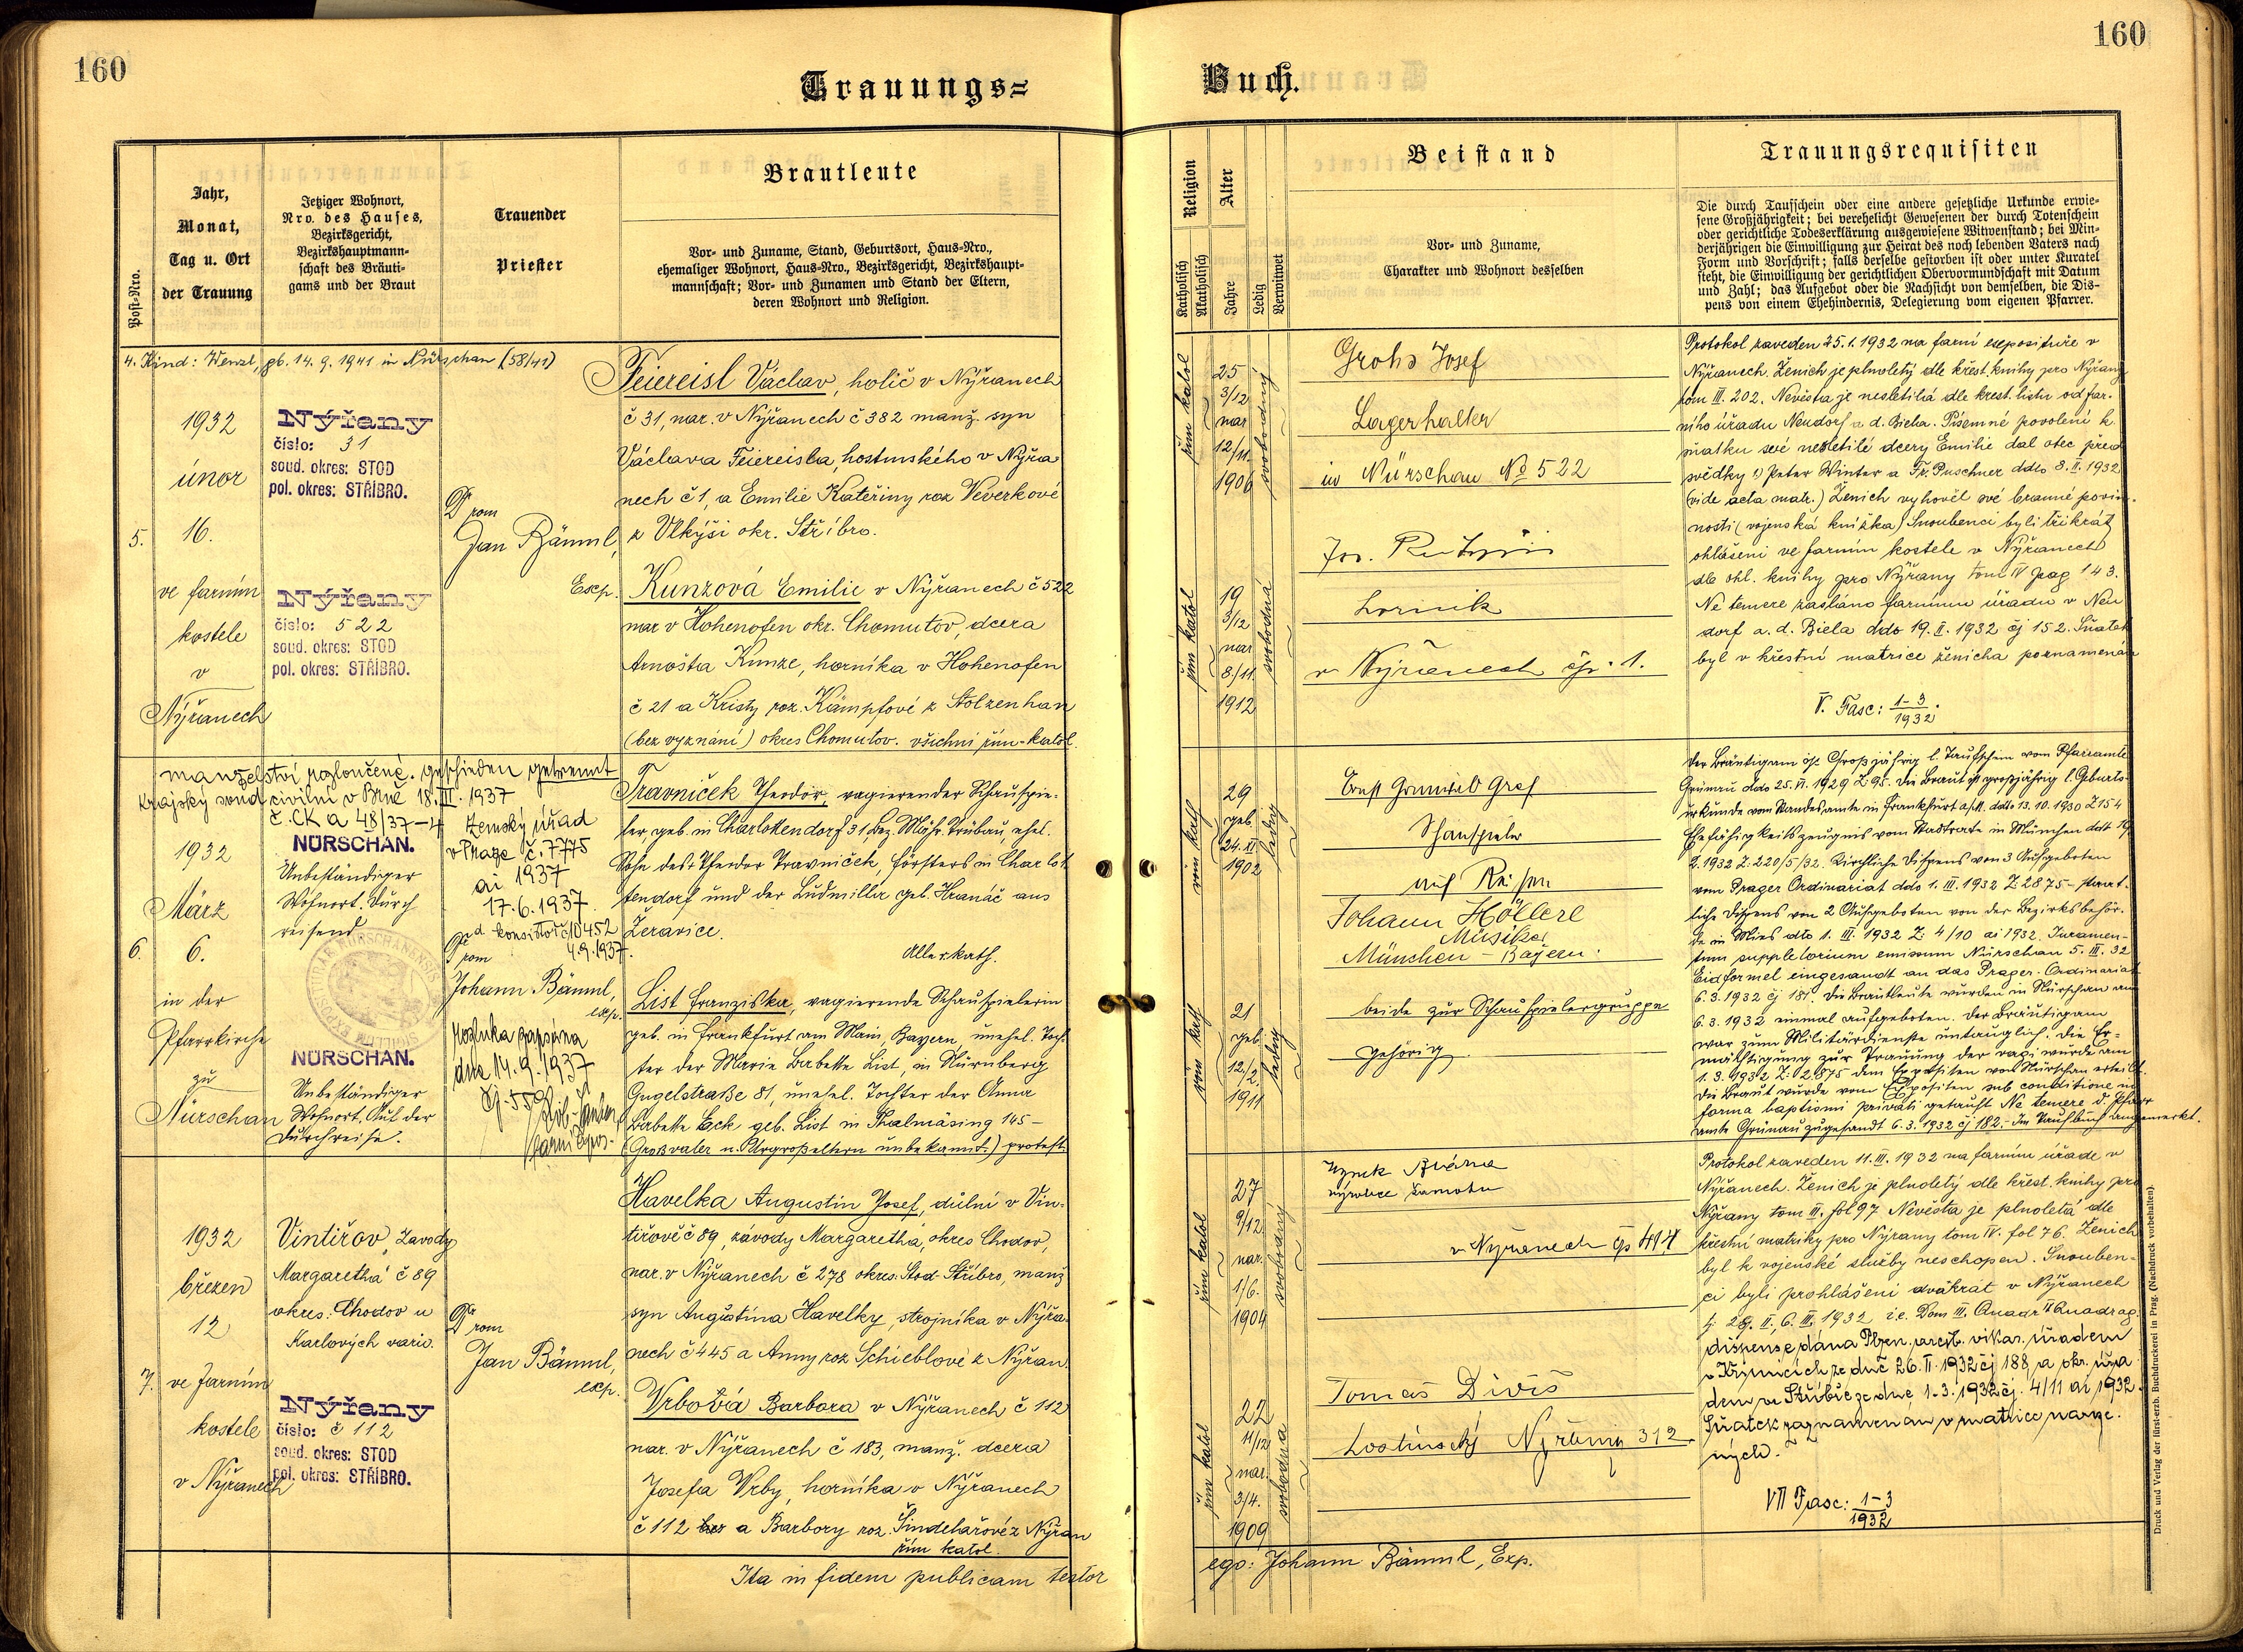 160
160
Trauungs=
Buch.
Post-Nro.
Jahr,
Monat,
Tag u. Ort
der Trauung
Jetziger Wohnort,
Nro. des Hauses,
Bezirksgericht,
Bezirkshauptmann-
schaft des Bräuti-
gams und der Braut
Trauender
Priester
Brautleute
Vor- und Zuname, Stand, Geburtsort, Haus-Nro.,
ehemaliger Wohnort, Haus-Nro., Bezirksgericht, Bezirkshaupt-
mannschaft; Vor- und Zunamen und Stand der Eltern,
deren Wohnort und Religion.
Religion
Katholisch
Akatholisch
Alter
Jahre
Ledig
Verwitwet
Beistand
Vor- und Zuname,
Charakter und Wohnort desselben
Trauungsrequisiten
Die durch Taufschein oder eine andere gesetzliche Urkunde erwie-
sene Großjährigkeit; bei verehelicht Gewesenen der durch Totenschein
oder gerichtliche Todeserklärung ausgewiesene Witwenstand; bei Min-
derjährigen die Einwilligung zur Heirat des noch lebenden Vaters nach
Form und Vorschrift; falls derselbe gestorben ist oder unter Kuratel
steht, die Einwilligung der gerichtlichen Obervormundschaft mit Datum
und Zahl; das Aufgebot oder die Nachsicht von demselben, die Dis-
pens von einem Ehehindernis, Delegierung vom eigenen Pfarrer.
4. Kind: Wenzl, gb. 14. 9. 1941 in Nürschan (58/41)
5.
1932
únor
16.
ve farním
kostele
v
Nýřanech
Nýřany
číslo: 31
soud. okres: STOD
pol. okres: STŘÍBRO.
Nýřany
číslo: 522
soud. okres: STOD
pol. okres: STŘÍBRO.
Jan Bäuml,
Exp.
Feiereisl Václav, holič v Nýřanech
č 31, nar. v Nýřanech č 382 manž. syn
Václava Feiereisla, hostinského v Nýřa
nech č 1, a Emilie Kateřiny roz Veverkové
z Vlkýši okr. Stříbro.
Kunzová Emilie v Nýřanech č 522
nar v Hohenofen okr. Chomutov, dcera
Arnošta Kunze, horníka v Hohenofen
č 21 a Kristy roz. Kämpfové z Stolzenhan
(bez vyznání) okres Chomutov. všichni řím-katol.
řím katol
25
3/12
nar
12/11.
1906
svobodný
řím katol
19
3/12
nar
8/11.
1912
svobodná
Grohs Josef
Lagerhalter
in Nürschan No 522
horník
v Nýřanech čp. 1.
Protokol zaveden 25. 1. 1932 na farní expositúře v
Nýřanech. Ženich je plnoletý dle křest. knihy pro Nýřany
tom III. 202. Nevěsta je nesletilá dle krest. listu od far-
ního úřadu Neudorf a. d. Biela. Písemné povolení k
sňatku své nezletilé dcery Emilie dal otec před
svědky 1) Peter Winter a Fr. Puschner ddto 8. II. 1932
(vide acta matr.) Ženich vyhověl své branné povin-
nosti (vojenská knížka) Snoubenci byli třikrát
ohlášeni ve farním kostele v Nýřanech
dle ohl. knihy pro Nýřany tom IV pag 143.
Ne temere zasláno farnímu úřadu v Neu
dorf a. d. Biela ddo 19. II. 1932 čj 152. Sňatek
byl v křestní matrice ženicha poznamenán
V. Fasc: 1-3
1932.
manželství rozloučené. geschieden getrennt
Krajský soud civilní v Brně 18. III. 1937
č. CK a 48/37-4
6.
1932
März
6.
in der
Pfarrkirche
zu
Nürschan
NÜRSCHAN.
Unbeständiger
Wohnort. Durch
reisend
NÜRSCHAN.
Unbeständiger
Wohnort. Auf der
Durchreise.
Zemský úřad
v Praze č. 7775
ai 1937
17. 6. 1937.
4.9.1937.
Johann Bäuml,
exp.
dne 14. 9. 1937
Travniček Theodor, vagierender Schauspie-
ler, geb. in Charlottendorf 31, Bez. Mähr. Trübau, ehel.
Sohn des Theodor Travniček, Försters in Charlot
tendorf und der Ludmilla geb. Hranáč aus
Žeravice.
Alle r. kath.
List Franziska, vagierende Schauspielerin
geb. in Frankfurt am Main, Bayern, unehel. Toch-
ter der Marie Babette List, in Nürnberg
Gugelstraße 81, unehel. Tochter der Anna
Babette Eck geb. List in Thalmässing 145 -
(Großvater u. Urgroßeltern unbekannt.) protest.
röm kath
29
geb.
24. II
1902
ledig
röm kath
21
geb.
12/2.
1911
ledig
Ernst Grunwald Graf
Schauspieler
auf Reisen
Johann Höllerl
Musiker
München - Bayern.
beide zur Schauspielergruppe
gehörig.
Der Bräutigam ist Großjährig l. Taufschein vom Pfarramte
Grünau ddo 25. VI. 1929 Z. 95. Die Braut ist großjährig l. Geburts-
urkunde vom Standesamte in Frankfurt a/M. ddto 13. 10. 1930 Z 154
Ehefähigkeitszeugnis vom Stadtrate in München ddt 19
2. 1932 Z. 220/5/32. Kirchliche Dispens von 3 Aufgeboten
vom Prager Ordinariat ddo 1. III. 1932 Z: 2875 - staat-
liche Dispens von 2 Aufgeboten von der Bezirksbehör-
de in Mies dto 1. III. 1932 Z: 4/10 ai 1932. Juramen-
tum suppletorium emissum Nürschan 5. III. 32
Eidformel eingesandt an das Prager Ordinariat
6. 3. 1932 čj 181. Die Brautleute wurden in Nürschan am
6. 3. 1932 einmal aufgeboten. Der Bräutigam
war zum Militärdienste untauglich. Die Er-
mächtigung zur Trauung der vagi wurde am
1. 3. 1932 Z: 2875 dem Expositen von Nürschan erteilt.
Die Braut wurde vom Expositen sub conditione in
forma baptismi privati getauft Ne temere d. Pfarr
amte Grünau zugesandt 6. 3. 1932 čj 182. - Im Taufbuch angemerkt.
7.
1932
březen
12
ve farním
kostele
v Nýřanech
Vintířov, Závody
Margaretha č 89
okres: Chodov u
Karlových varů.
Nýřany
číslo: č 112
soud. okres: STOD
pol. okres: STŘÍBRO.
Jan Bäuml,
exp.
Havelka Augustin Josef, důlní v Vin-
tířově č 89, závody Margaretha, okres Chodov,
nar. v Nýřanech č 278 okres. Stod Stříbro, manž
syn Augustína Havelky, strojníka v Nýřa-
nech č 445 a Anny roz Schieblové z Nýřan.
Vrbová Barbora v Nýřanech č 112
nar. v Nýřanech č 183, manž. dcera
Josefa Vrby, horníka v Nýřanech
č 112 a Barbory roz. Šindelářové z Nýřan
řím katol.
řím katol
27
9/12
nar.
1/6.
1904
svobodný
řím katol
22
11/12
nar.
3/4.
1909
svobodná
v Nýřanech čp 414
Tomáš Diviš
hostinský Nýřany 312
Protokol zaveden 11. III. 1932 na farním úřadě v
Nýřanech. Ženich je plnoletý dle křest. knihy pro
Nýřany tom III. fol 97 Nevěsta je plnoletá dle
křestní matriky pro Nýřany tom IV. fol 76. Ženich
byl k vojenské služby neschopen. Snouben-
ci byli prohlášeni dvakrát v Nýřanech
tj. 28. II, 6. III. 1932 i.e. Dom III. Quadr IV Quadrag.
dispense dána Plzen. arcib. vikar. úřadem
v Křimicích ze dne 26. II. 1932 čj 188 a okr. úřa
dem ve Stříbře ze dne 1. 3. 1932 čj. 4/11 ai 1932.
Sňatek zaznamenán v matrice narze-
ných.
VII Fasc: 1-3
1932
Ita in fidem publicam testor
ego: Johann Bäuml, Exp.
Druck und Verlag der fürst-erzb. Buchdruckerei in Prag. (Nachdruck vorbehalten).